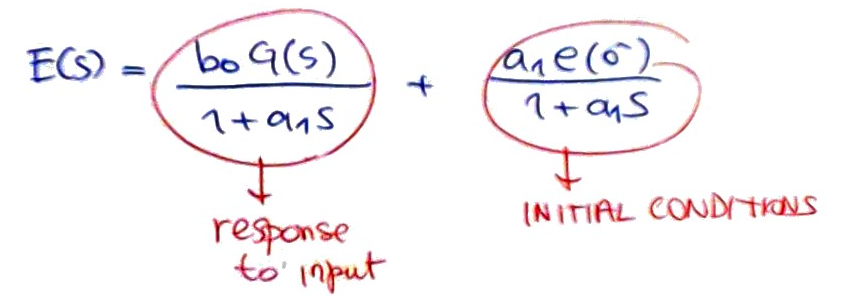 E(s) = b₀G(s) / 1+a₁s + a₁e(0⁻) / 1+a₁s
response
to input
INITIAL CONDITIONS